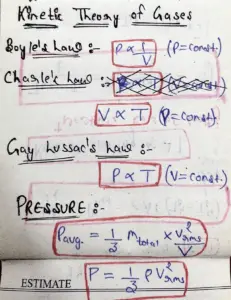 Kinetic Theory of Gases
Boyle's Law :- P ∝ 1/V (P=const.)
Charle's Law :-
V ∝ T (P=const.)
Gay Lussac's Law :-
P ∝ T (V=const.)
PRESSURE :-
Pavg. = 1/3 mtotal × V²rms/V
ESTIMATE P = 1/3 ρ V²rms